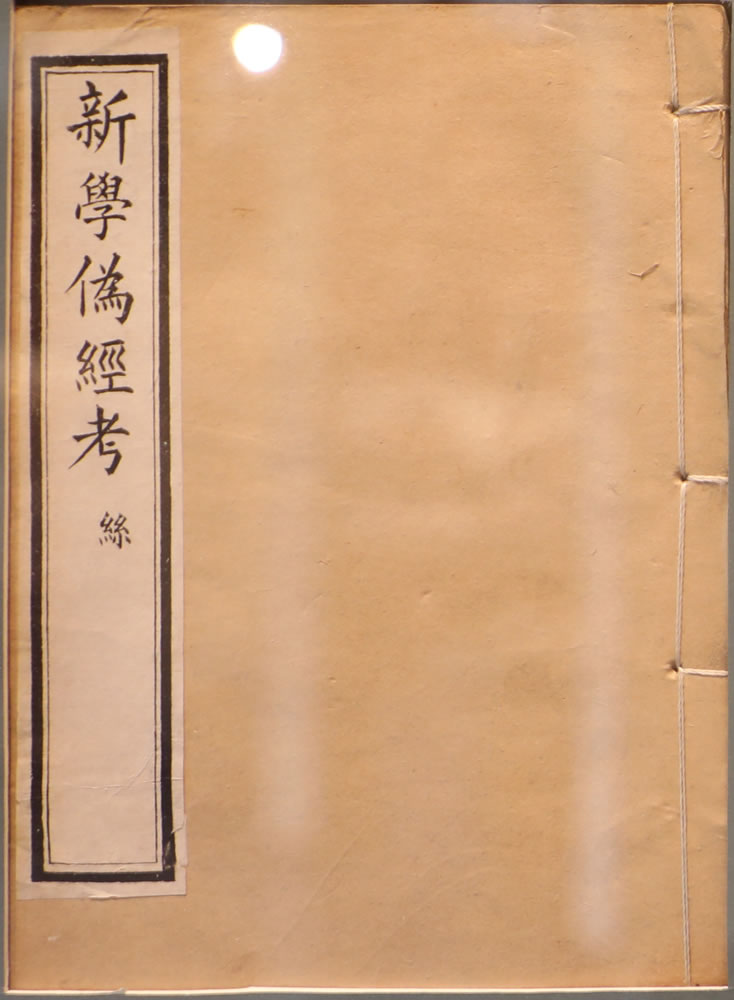 新學僞經考
絲